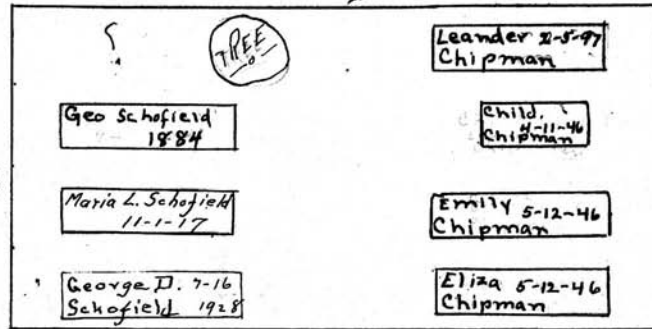 ?
TREE
Geo Schofield
1884
Maria L. Schofield
11-1-17
George D. 7-16
Schofield 1928
Leander 2-5-97
Chipman
Child.
4-11-46
Chipman
Emily 5-12-46
Chipman
Eliza 5-12-46
Chipman